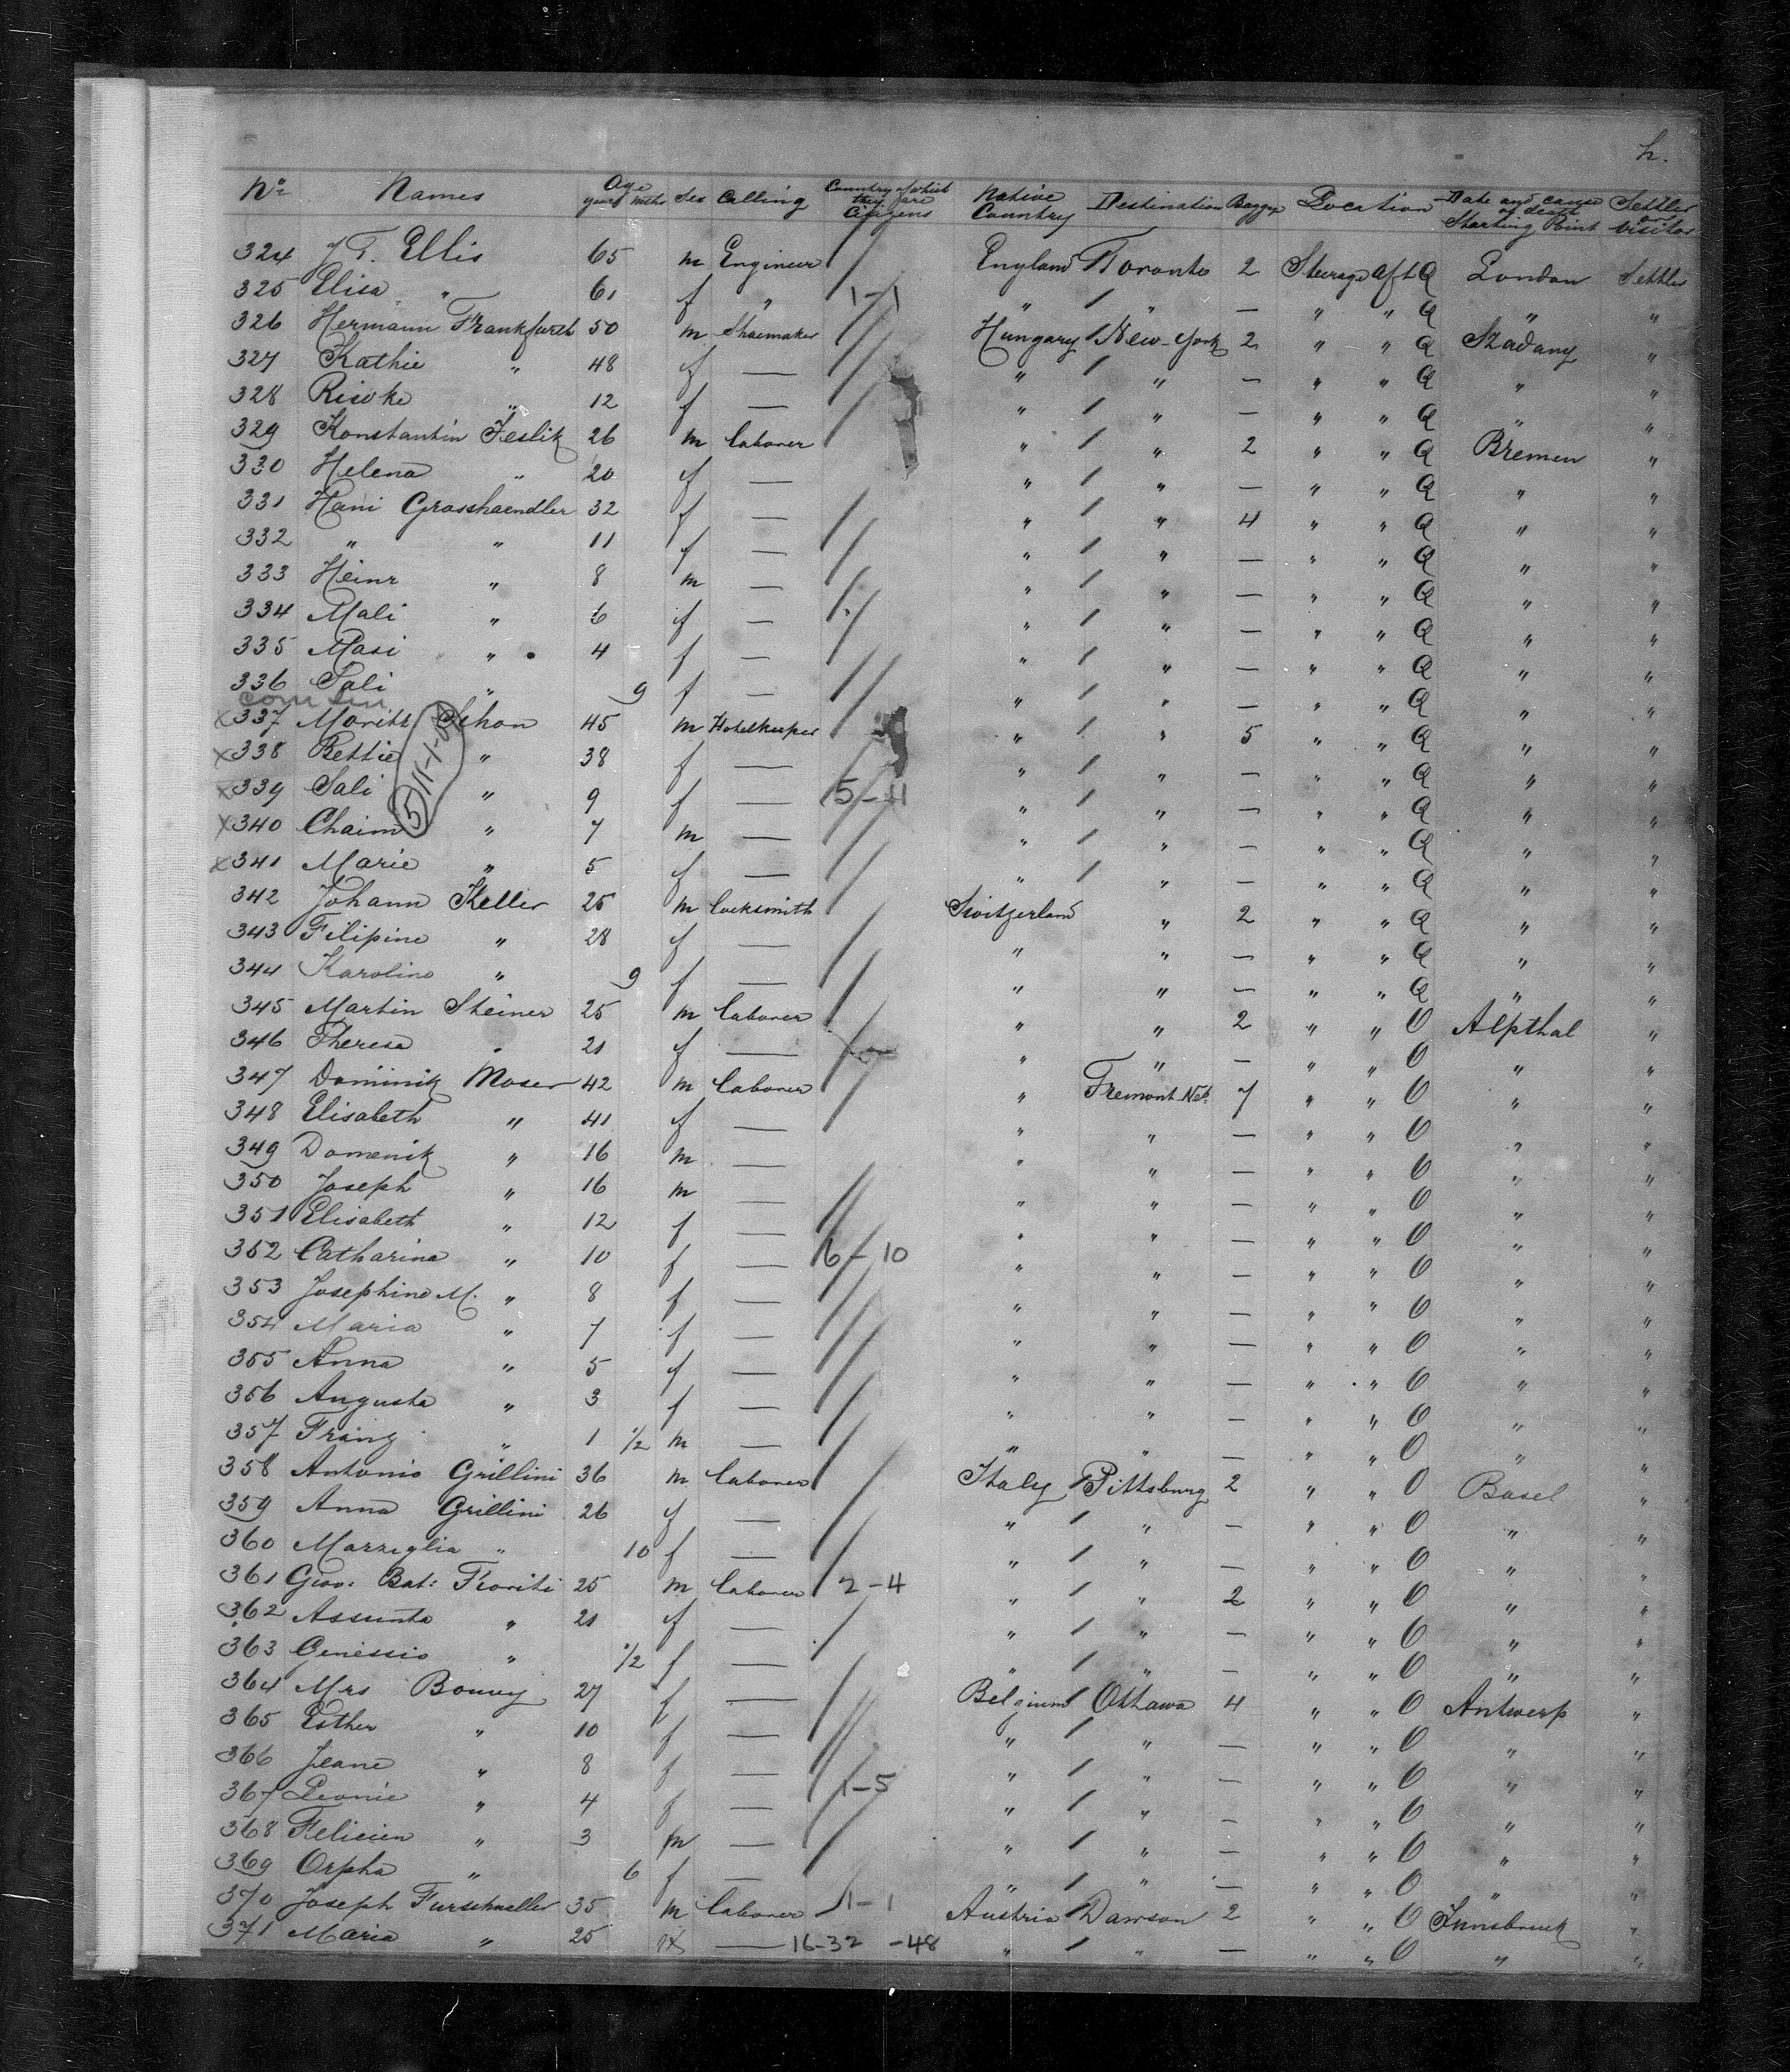 h.
No Names Age years mths Sex Calling Country of which they are Citizens Native Country Destination Baggage Location Date and cause of death Starting Point Settler or Visitor
324 J. T. Ellis 65 m Engineer England Toronto 2 Steerage aft Q London Settler
325 Elisa " 61 f " 1-1 " " — " " Q " "
326 Hermann Frankfurth 50 m Shoemaker Hungary New-York 2 " " Q Szadany "
327 Kathie " 48 f — " " — " " Q " "
328 Riwke " 12 f — " " — " " Q " "
329 Konstantin Jeslik 26 m laborer " " 2 " " Q Bremen "
330 Helena " 20 f — " " — " " Q " "
331 Hani Grosshaendler 32 f — " " 4 " " Q " "
332 " " 11 f — " " — " " Q " "
333 Heinr " 8 m — " " — " " Q " "
334 Mali " 6 f — " " — " " Q " "
335 Masi " 4 f — " " — " " Q " "
336 Sali " 9 f — " " — " " Q " "
x 337 Moritz Schon 45 m Hotelkeeper " " 5 " " Q " "
x 338 Bettie " 38 f — " " — " " Q " "
x 339 Sali " 9 f — 5-11 " " — " " Q " "
x 340 Chaim " 7 m — " " — " " Q " "
x 341 Marie " 5 f — " " — " " Q " "
342 Johann Keller 25 m locksmith Switzerland " 2 " " Q " "
343 Filipine " 28 f — " " — " " Q " "
344 Karoline " 9 f — " " — " " Q " "
345 Martin Steiner 25 m laborer " " 2 " " O Alpthal "
346 Theresa " 21 f — " " — " " O " "
347 Dominik Moser 42 m laborer " Fremont Neb. 7 " " O " "
348 Elisabeth " 41 f — " " — " " O " "
349 Domenik " 16 m — " " — " " O " "
350 Joseph " 16 m — " " — " " O " "
351 Elisabeth " 12 f — " " — " " O " "
352 Catharina " 10 f — 6-10 " " — " " O " "
353 Josephine M. " 8 f — " " — " " O " "
354 Maria " 7 f — " " — " " O " "
355 Anna " 5 f — " " — " " O " "
356 Augusta " 3 f — " " — " " O " "
357 Franz " 1 1/2 m — " " — " " O " "
358 Antonio Grillini 36 m laborer Italy Pittsburg 2 " " O Basel "
359 Anna Grillini 26 f — " " — " " O " "
360 Marziglia " 10 f — " " — " " O " "
361 Giov: Bat: Fioriti 25 m laborer 2-4 " " 2 " " O " "
362 Assunta " 21 f — " " — " " O " "
363 Genessio " 1/2 f — " " — " " O " "
364 Mrs Bouvy 27 f — Belgium Ottawa 4 " " O Antwerp "
365 Esther " 10 f — " " — " " O " "
366 Jeane " 8 f — 1-5 " " — " " O " "
367 Leonie " 4 f — " " — " " O " "
368 Felicien " 3 m — " " — " " O " "
369 Orpha " 6 f — " " — " " O " "
370 Joseph Furschneller 35 m laborer 1-1 Austria Dawson 2 " " O Innsbruck "
371 Maria " 25 — 16-32 -48 " " — " " O " "